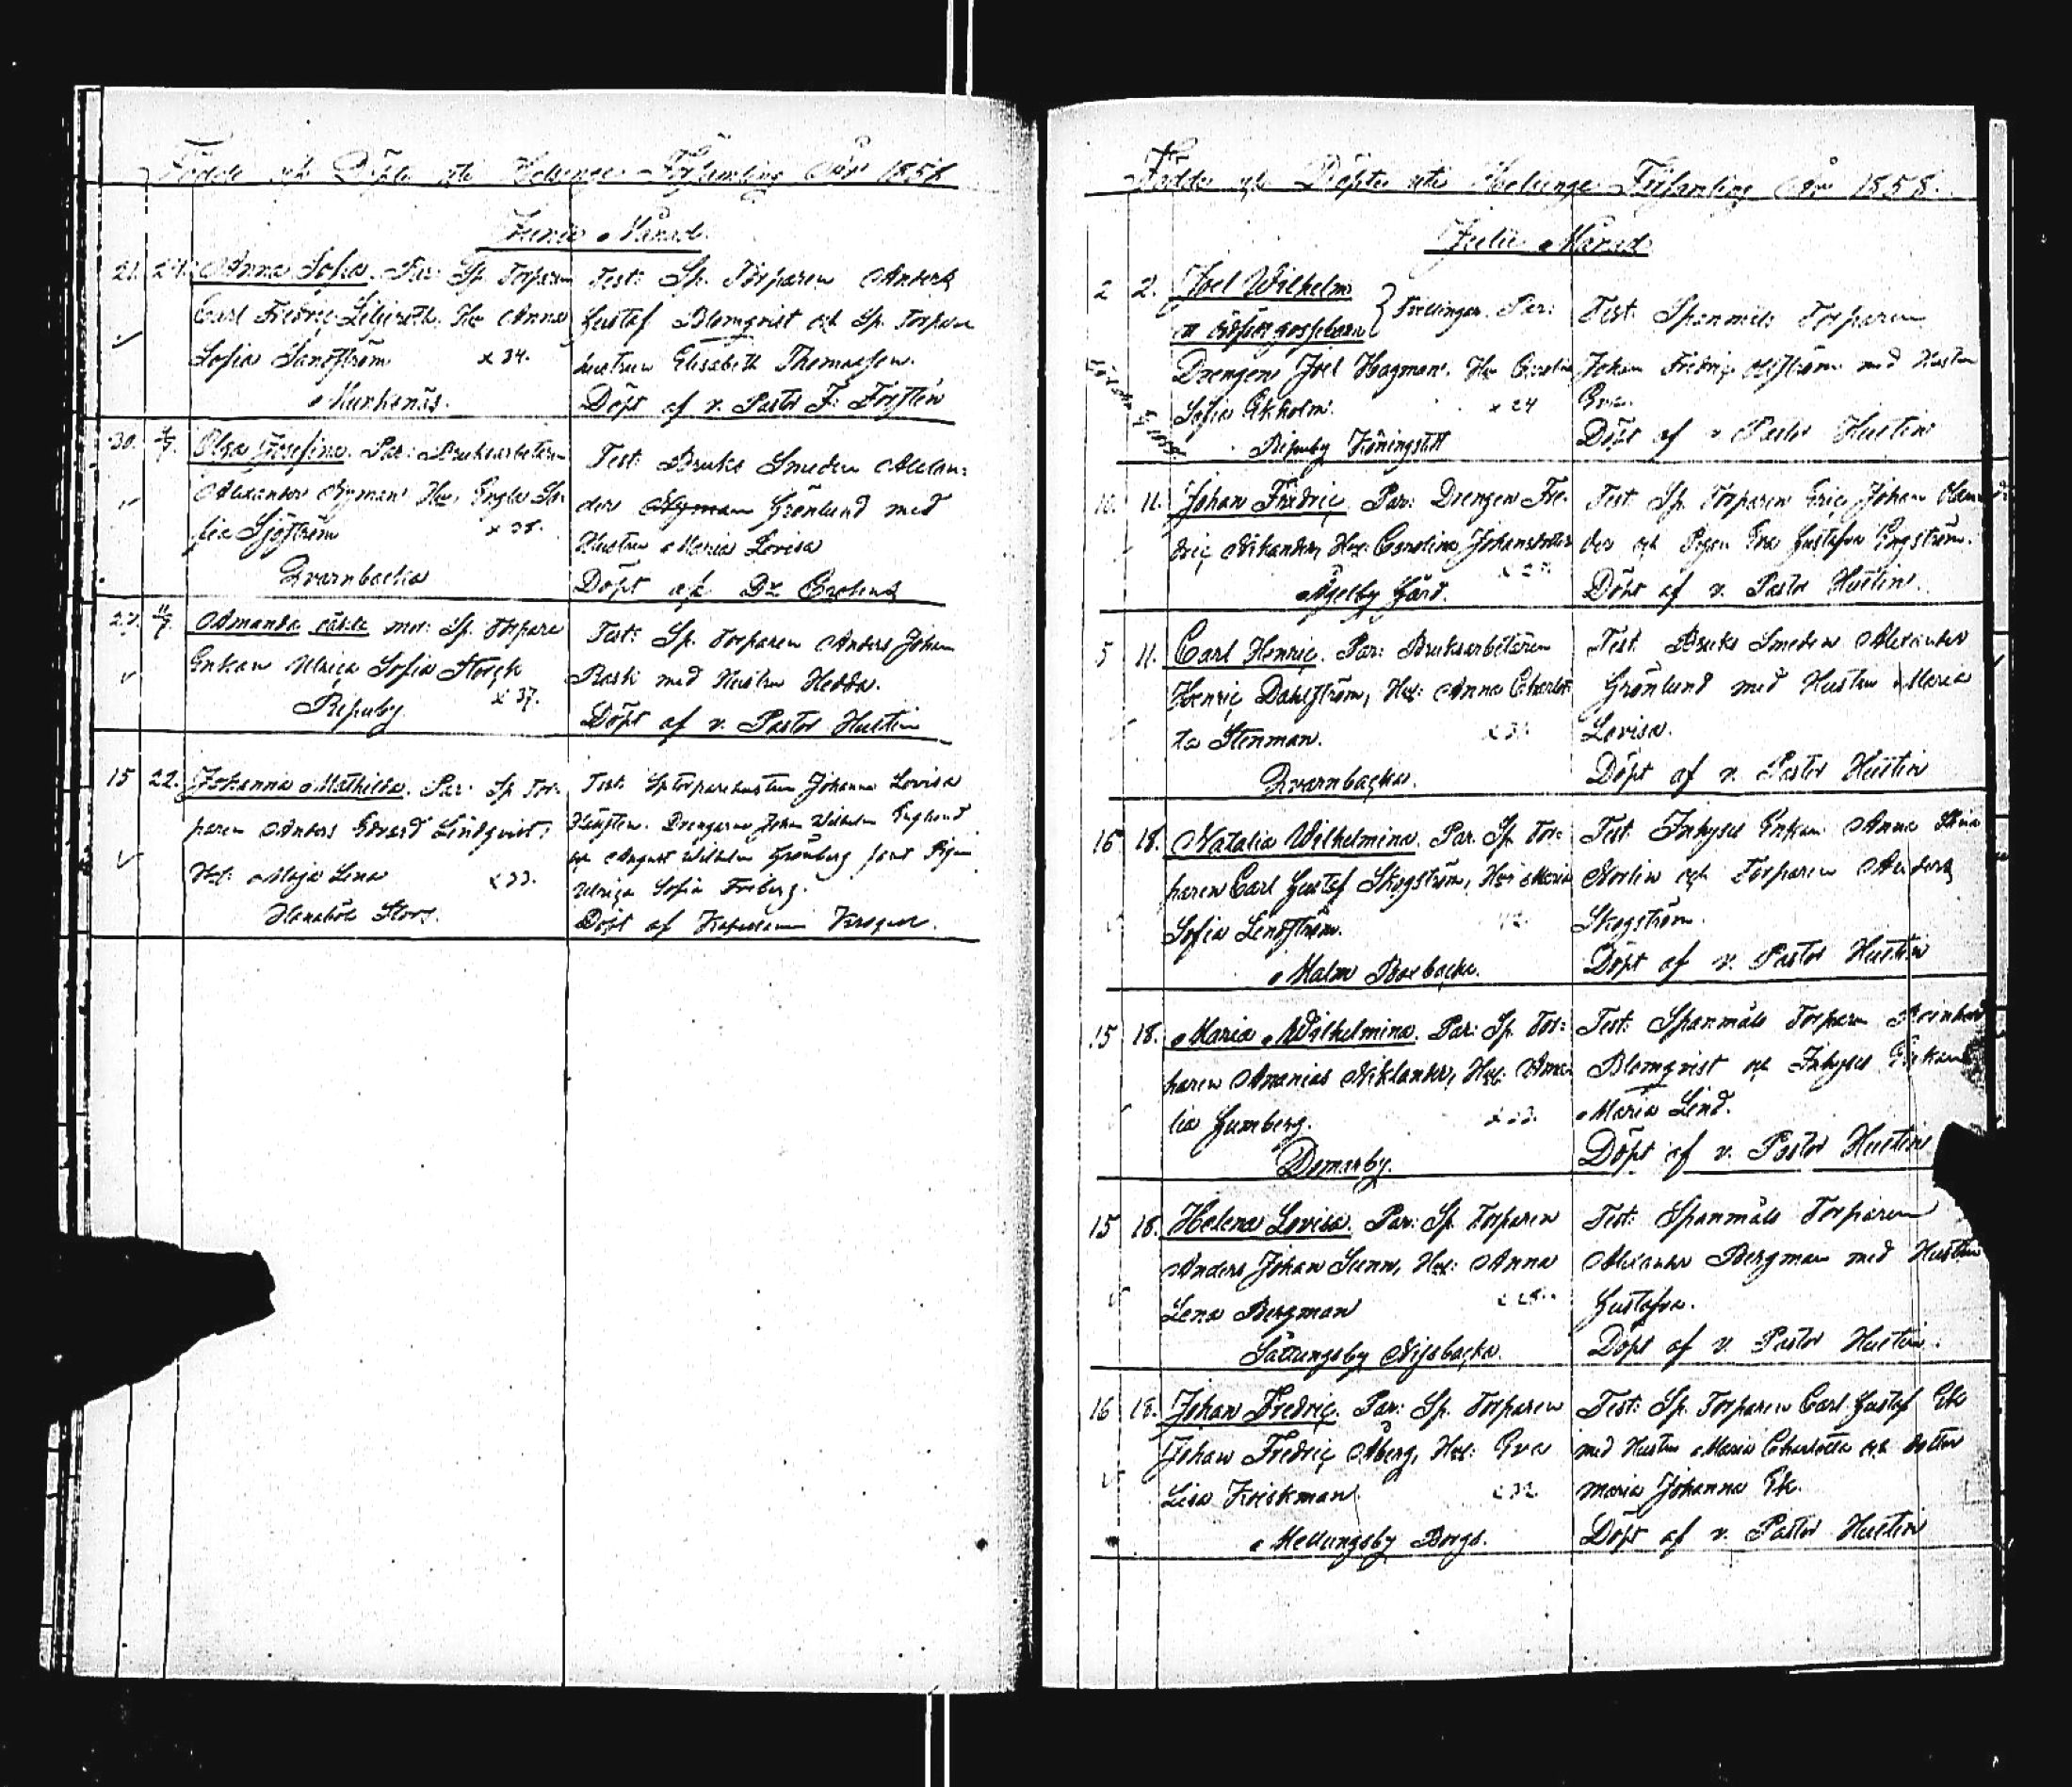 Födde och Döpte uti Helsinge Församling År 1858
Junii Månad.
21. 24. Anna Sofia. Par: Sp. Torparen
Carl Fredric Liljeroth, Hu Anna
Sofia Sandström x 34.
Munkenäs.
Test: Sp. Torparen Anders
Gustaf Blomqvist och Sp. Torpare
hustrun Elisabeth Thomasson.
Döpt af v. Pastor F: Forstén
30. 4/7. Olga Josefina. Par: Bruksarbetaren
Alexander Nyman Hu, Engla So-
fia Sjöström x 28.
Qvarnbacka
Test: Bruks Smeden Alexan-
der Nyman Grönlund med
Hustru Maria Lovisa
Döpt af
27. 11/7. Amanda oäkta mor: Sp. Torpare
Enkan Ulrica Sofia Storgk
x 37.
Ripuby
Test: Sp. Torparen Anders Johan
Rask med Hustru Hedda.
Döpt af v. Pastor Hustin
15 22. Johanna Mathilda. Par: Sp Tor-
paren Anders Edvard Lindqvist,
Hu: Maja Lena x 33.
Hanaböle Stors.
Test: Sp torparehustrun Johanna Lovisa
Drengarne Johan Wilhelm Englund
och August Wilhelm Grönberg samt Pigan
Ulrica Sofia Friberg.
Döpt af Kapellanen
Födde och Döpte uti Helsinge Församling År 1858.
Julii Månad
2 2. Joel Wilhelm
et dödfödt gossebarn } Tvillingar. Par:
Drengen Joel Hagman. Hu Carolina
Sofia Ekholm. x 24
Ripuby Köningstedt
Test: Spanmåls Torparen
Johan Fredric Alström med Hustru
Eva.
Döpt af v. Pastor Hustin
10. 11. Johan Fredric. Par: Drengen Fre-
dric Nikander, Hu: Carolina Johansdotter
x 27.
Åggelby Gård.
Test: Sp. Torparen Eric Johan
och Pigan Eva Gustafva Engström.
Döpt af v. Pastor Hustin.
5 11. Carl Henric. Par: Bruksarbetaren
Henric Dahlström, Hu: Anna Charlot-
ta Stenman.
Qvarnbacka.
Test: Bruks Smeden Alexander
Grönlund med Hustru Maria
Lovisa.
Döpt af v. Pastor Hustin
16 18. Natalia Wilhelmina. Par: Sp. Tor-
paren Carl Gustaf Skogström, Hu: Maria
Sofia Lindström.
Malm Boxbacka.
Test: Inhyses Enkan Anna Stina
Norlin och Torparen Anders
Skogström.
Döpt af v. Pastor Hustin
15 18. Maria Wilhelmina. Par: Sp. Tor-
paren Ananias Niklander, Hu: Ama-
lia Gumberg. x 33.
Domarby.
Test: Spanmåls Torparen Reinhold
Blomqvist och Inhyses Enkan
Maria Lind.
Döpt af v. Pastor Hustin
15 18. Helena Lovisa. Par: Sp. Torparen
Anders Johan Sunn, Hu: Anna
Lena Bergman x 28.
Sottungsby Nissbacka.
Test: Spanmåls Torparen
Alexander Bergman med Hustru
Gustafva.
Döpt af v. Pastor Hustin.
16 18. Johan Fredric. Par: Sp. Torparen
Johan Fredric Åberg, Hu: Eva
Lisa Friskman. x 32
Mellungsby Borgs.
Test: Sp. Torparen Carl Gustaf Ek
med Hustru Maria Charlotta och dotter
Maria Johanna Ek.
Döpt af v. Pastor Hustin